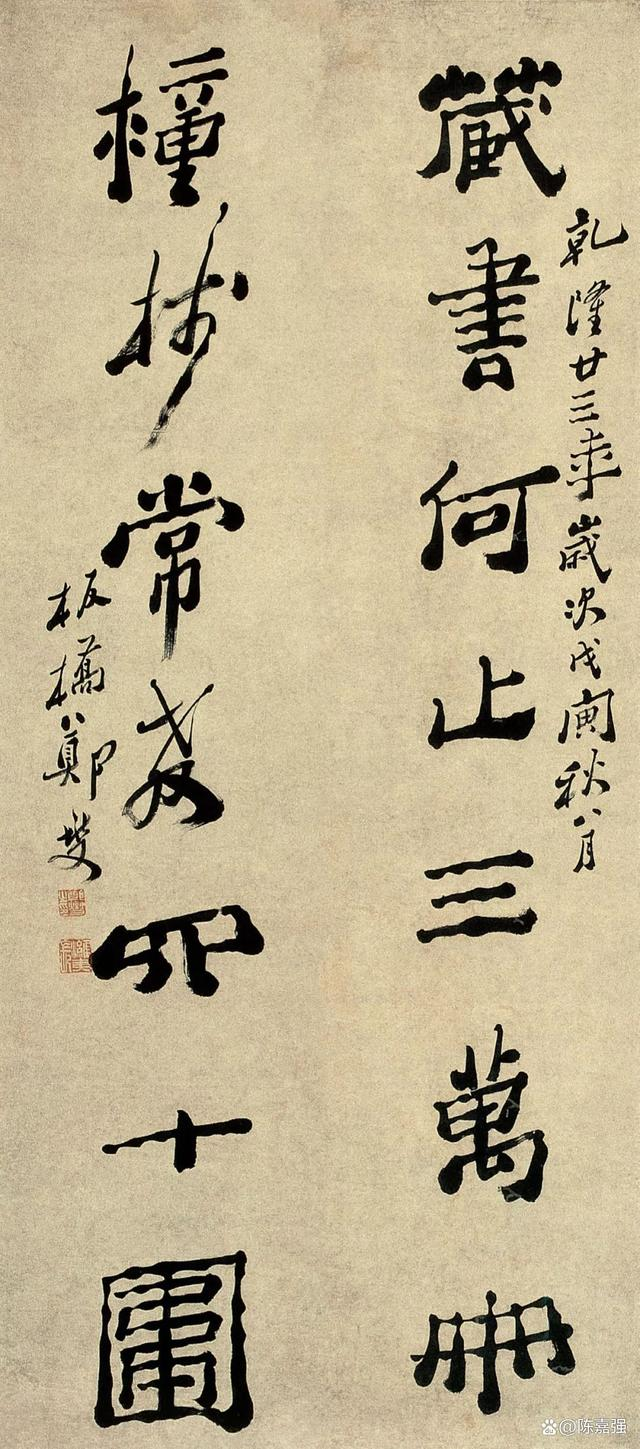 乾隆廿三年歲次戊寅秋八月
藏書何止三萬冊
種樹常教四十圍
板橋鄭燮
@陈嘉强